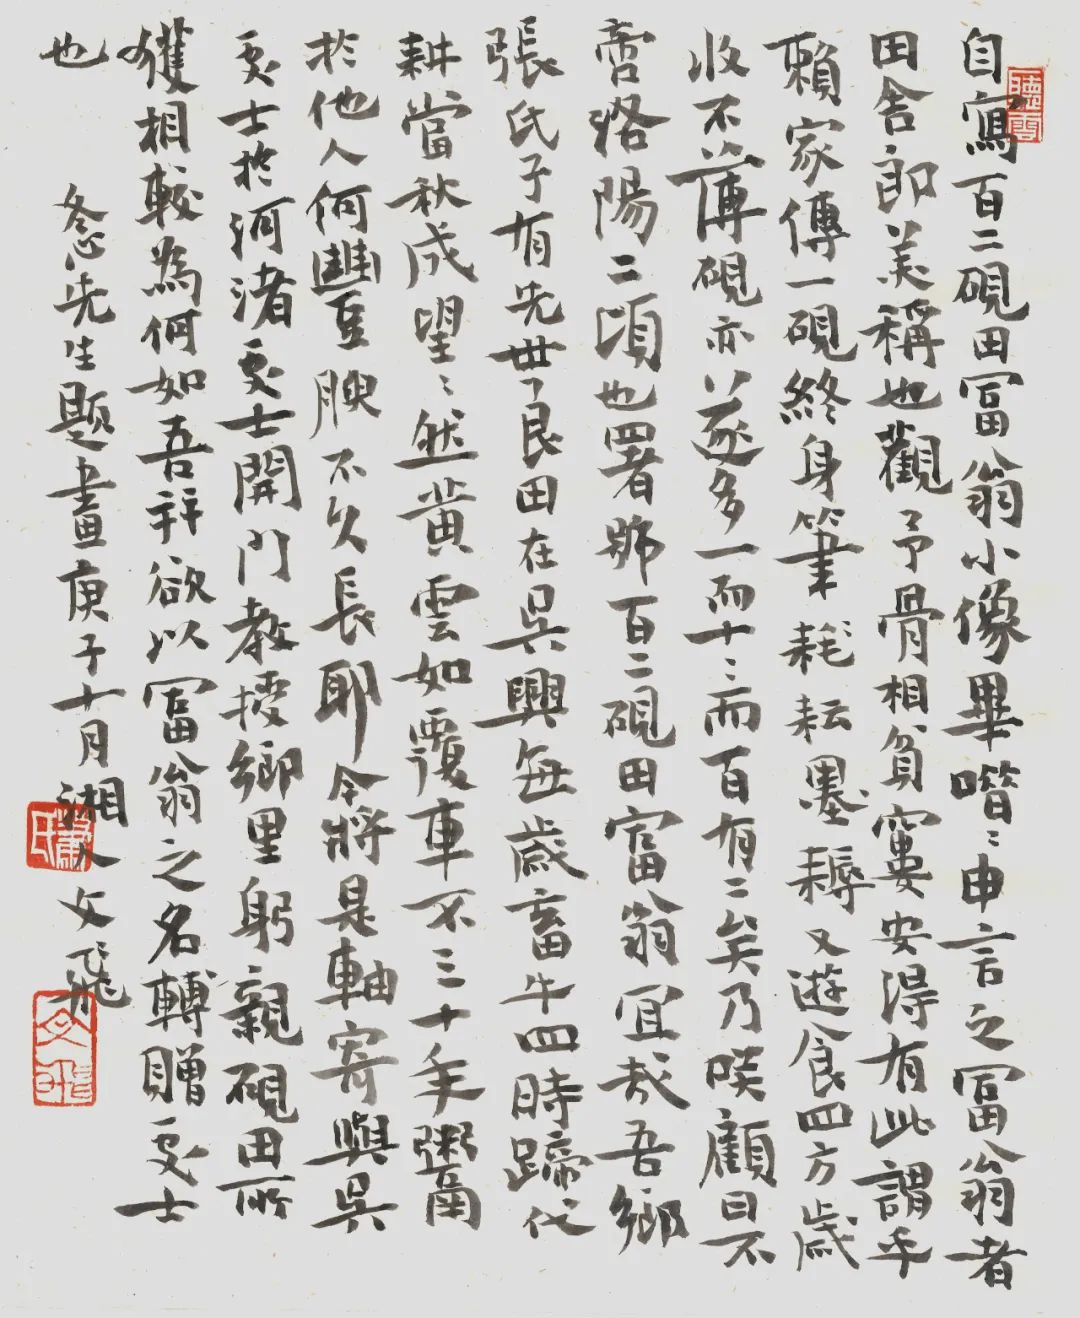 自寫百二硯田富翁小像畢喈〻申言之富翁者
田舍郎美稱也觀予骨相貧窶安得有此謂乎
賴家傳一硯終身筆耗耘墨耨又遊食四方歲
收不薄硯亦遂多一而十〻而百有二矣乃啖顧曰不
啻洛陽二頃也署號百二硯田富翁宜哉吾鄉
張氏子有先世良田在吳興每歲畜牛四時蹄代
耕當秋成望〻然黃雲如覆車不三十年鬻
於他人何豐腴不久長耶今將是軸寄與吳
處士於河渚處士開門教授鄉里躬親硯田所
獲相較為何如吾并欲以富翁之名轉贈處士
也
冬心先生題畫庚子十月湘人文飛
聽雲
蕭氏
文飛